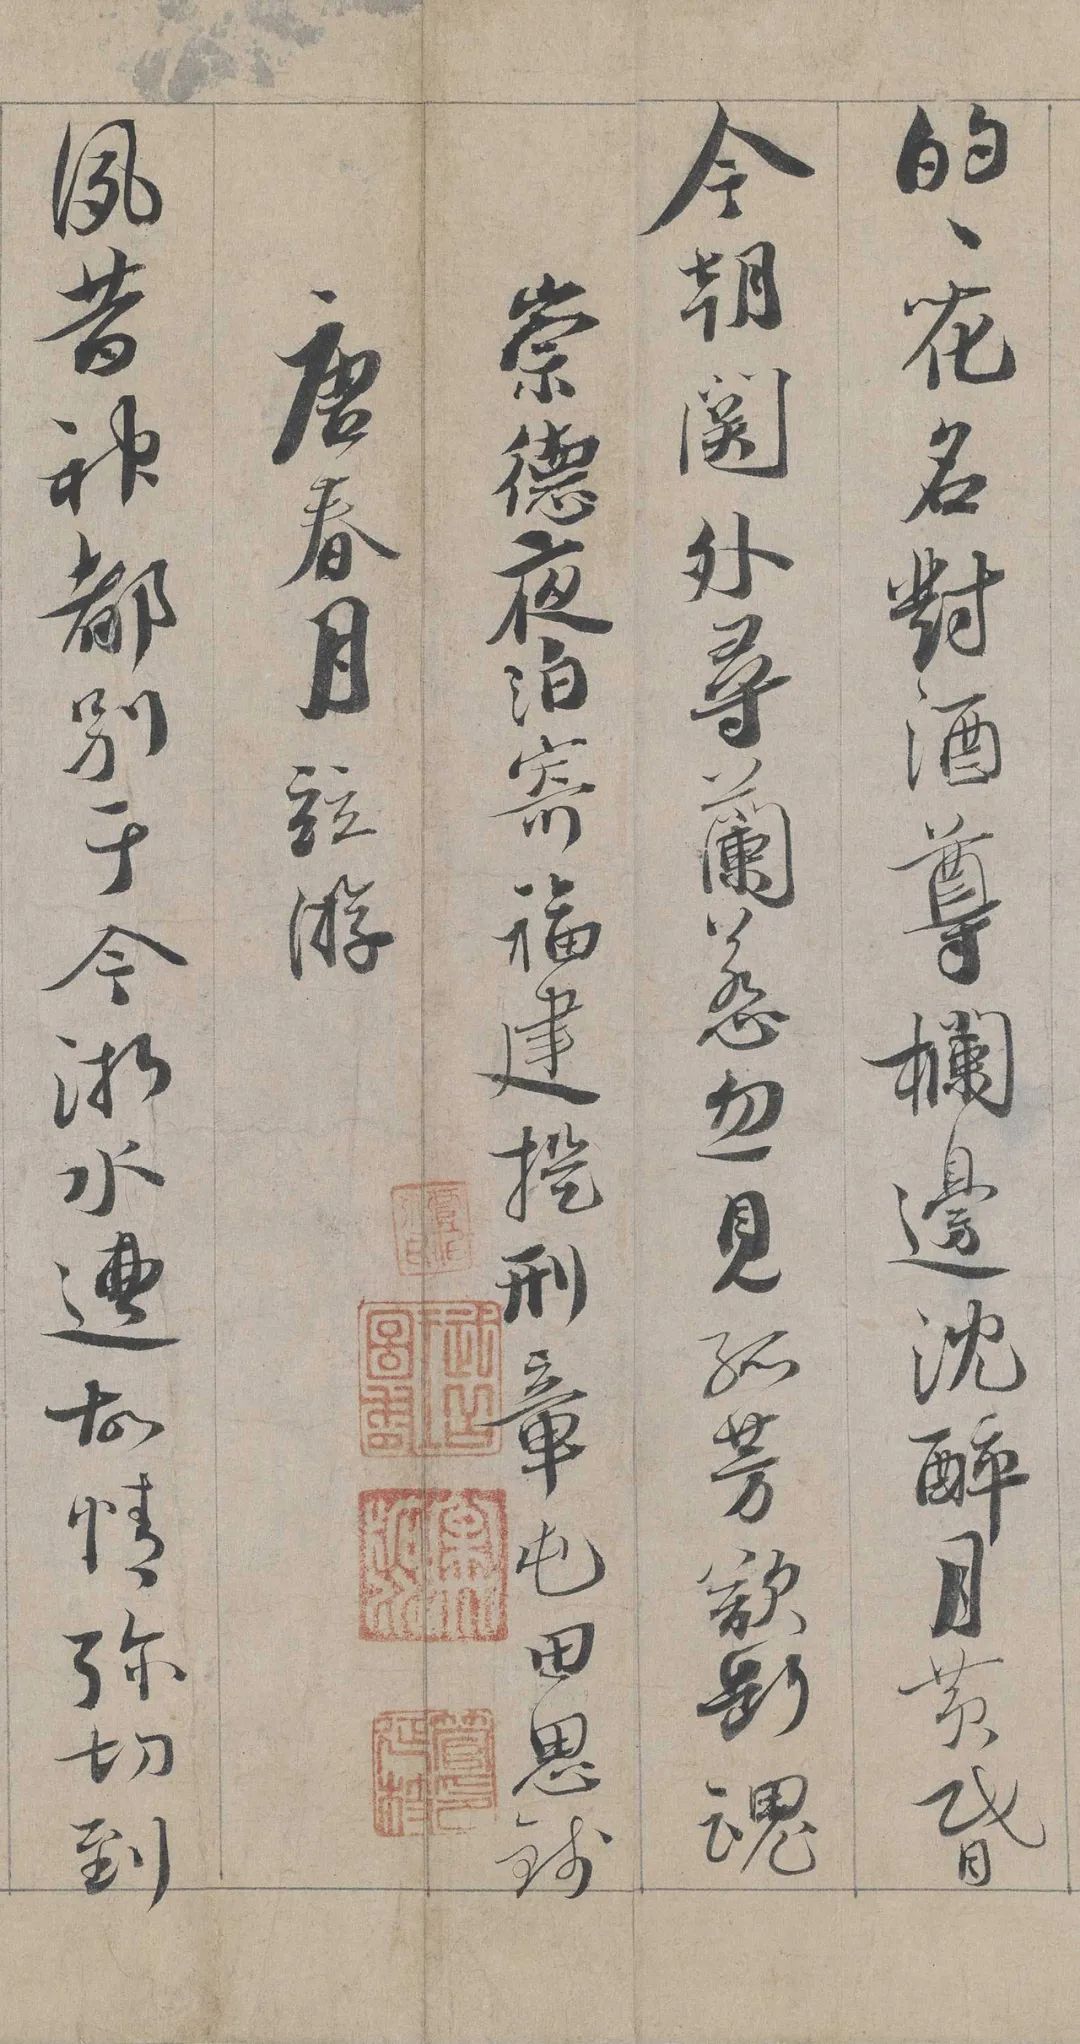 的々花名對酒尊欄邊沈醉月黃昏
今朝關外尋蘭蕊忽見孤芳欲斷魂
崇德夜泊寄福建提刑章屯田思錢
唐春月並游
夙昔神都別于今浙水遭故情弥切到